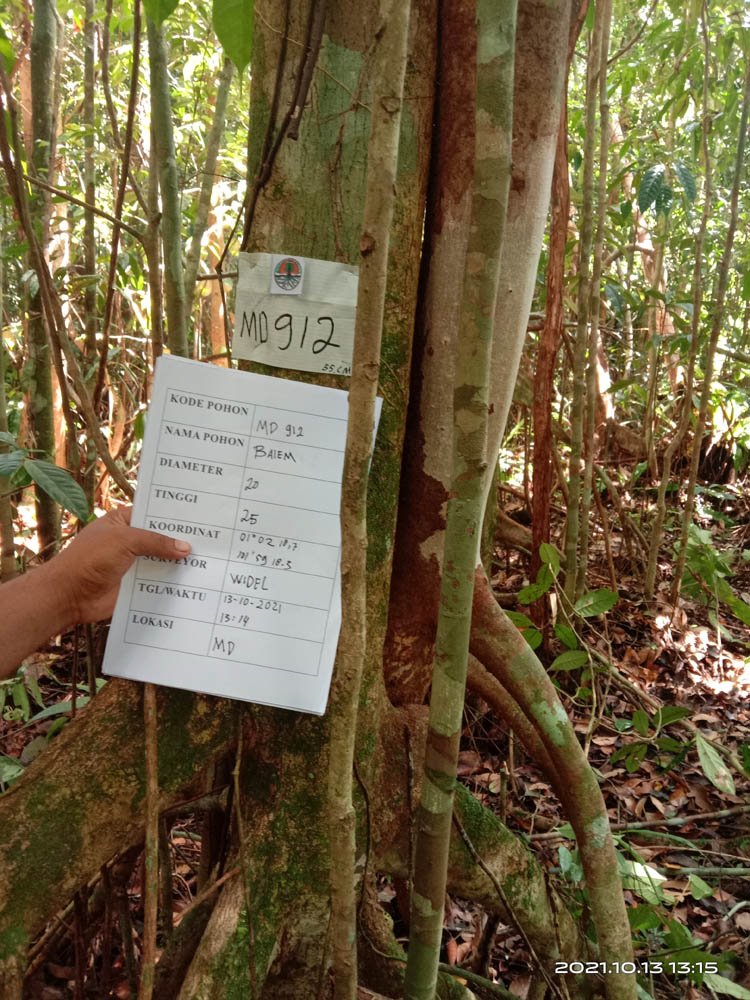 MD 912
55 CM
KODE POHON MD 912
NAMA POHON BAIEM
DIAMETER 20
TINGGI 25
KOORDINAT 01°02 18,7
101°59 18.3
SURVEYOR WIDEL
TGL/WAKTU 13-10-2021
13:14
LOKASI MD
2021.10.13 13:15